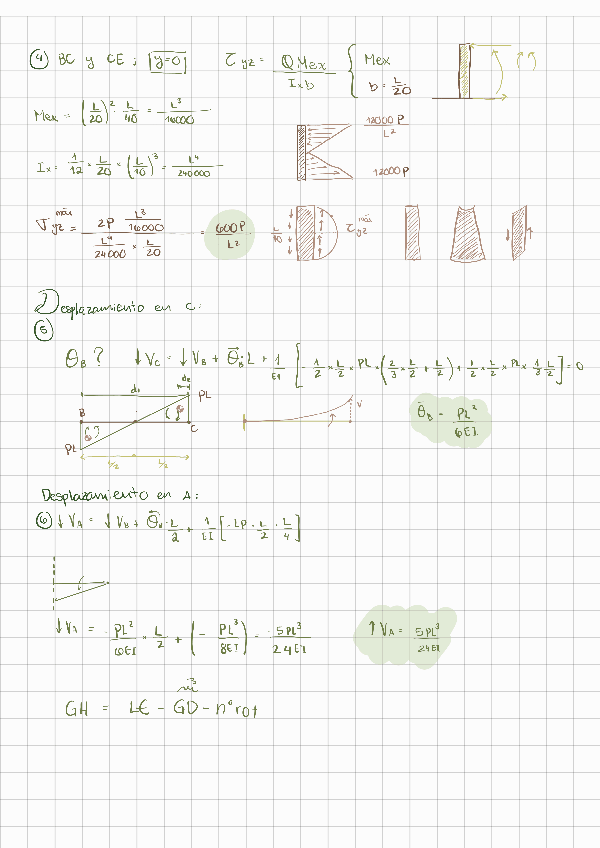 ④ BC y CE; y=0 τyz = Q Mex / Ix b { Mex b = L/20
Mex = (L/20)² · L/40 = L³/16000
12000 P / L²
Ix = 1/12 × L/20 × (L/10)³ = L⁴/240000
12000 P
τyz máx = 2P L³/16000 / L⁴/24000 × L/20 = 600P/L² L/40 τyz máx
Desplazamiento en C:
⑤
θB? ↓Vc = ↓VB + θB·L + 1/EI [- 1/2 × L/2 × PL × (2/3 × L/2 + L/2) + 1/2 × L/2 × PL × 1/3 L/2] = 0
d₁ d₂ PL
B C V
PL
L/2 L/2
θB = PL²/6EI
Desplazamiento en A:
⑥ ↓VA = ↓VB + θB · L/2 + 1/EI [-LP · L/2 · L/4]
↓VA = PL²/6EI × L/2 + (- PL³/8EI) = -5PL³/24EI ↑VA = 5PL³/24EI
3
GH = LE - GD - n° rot